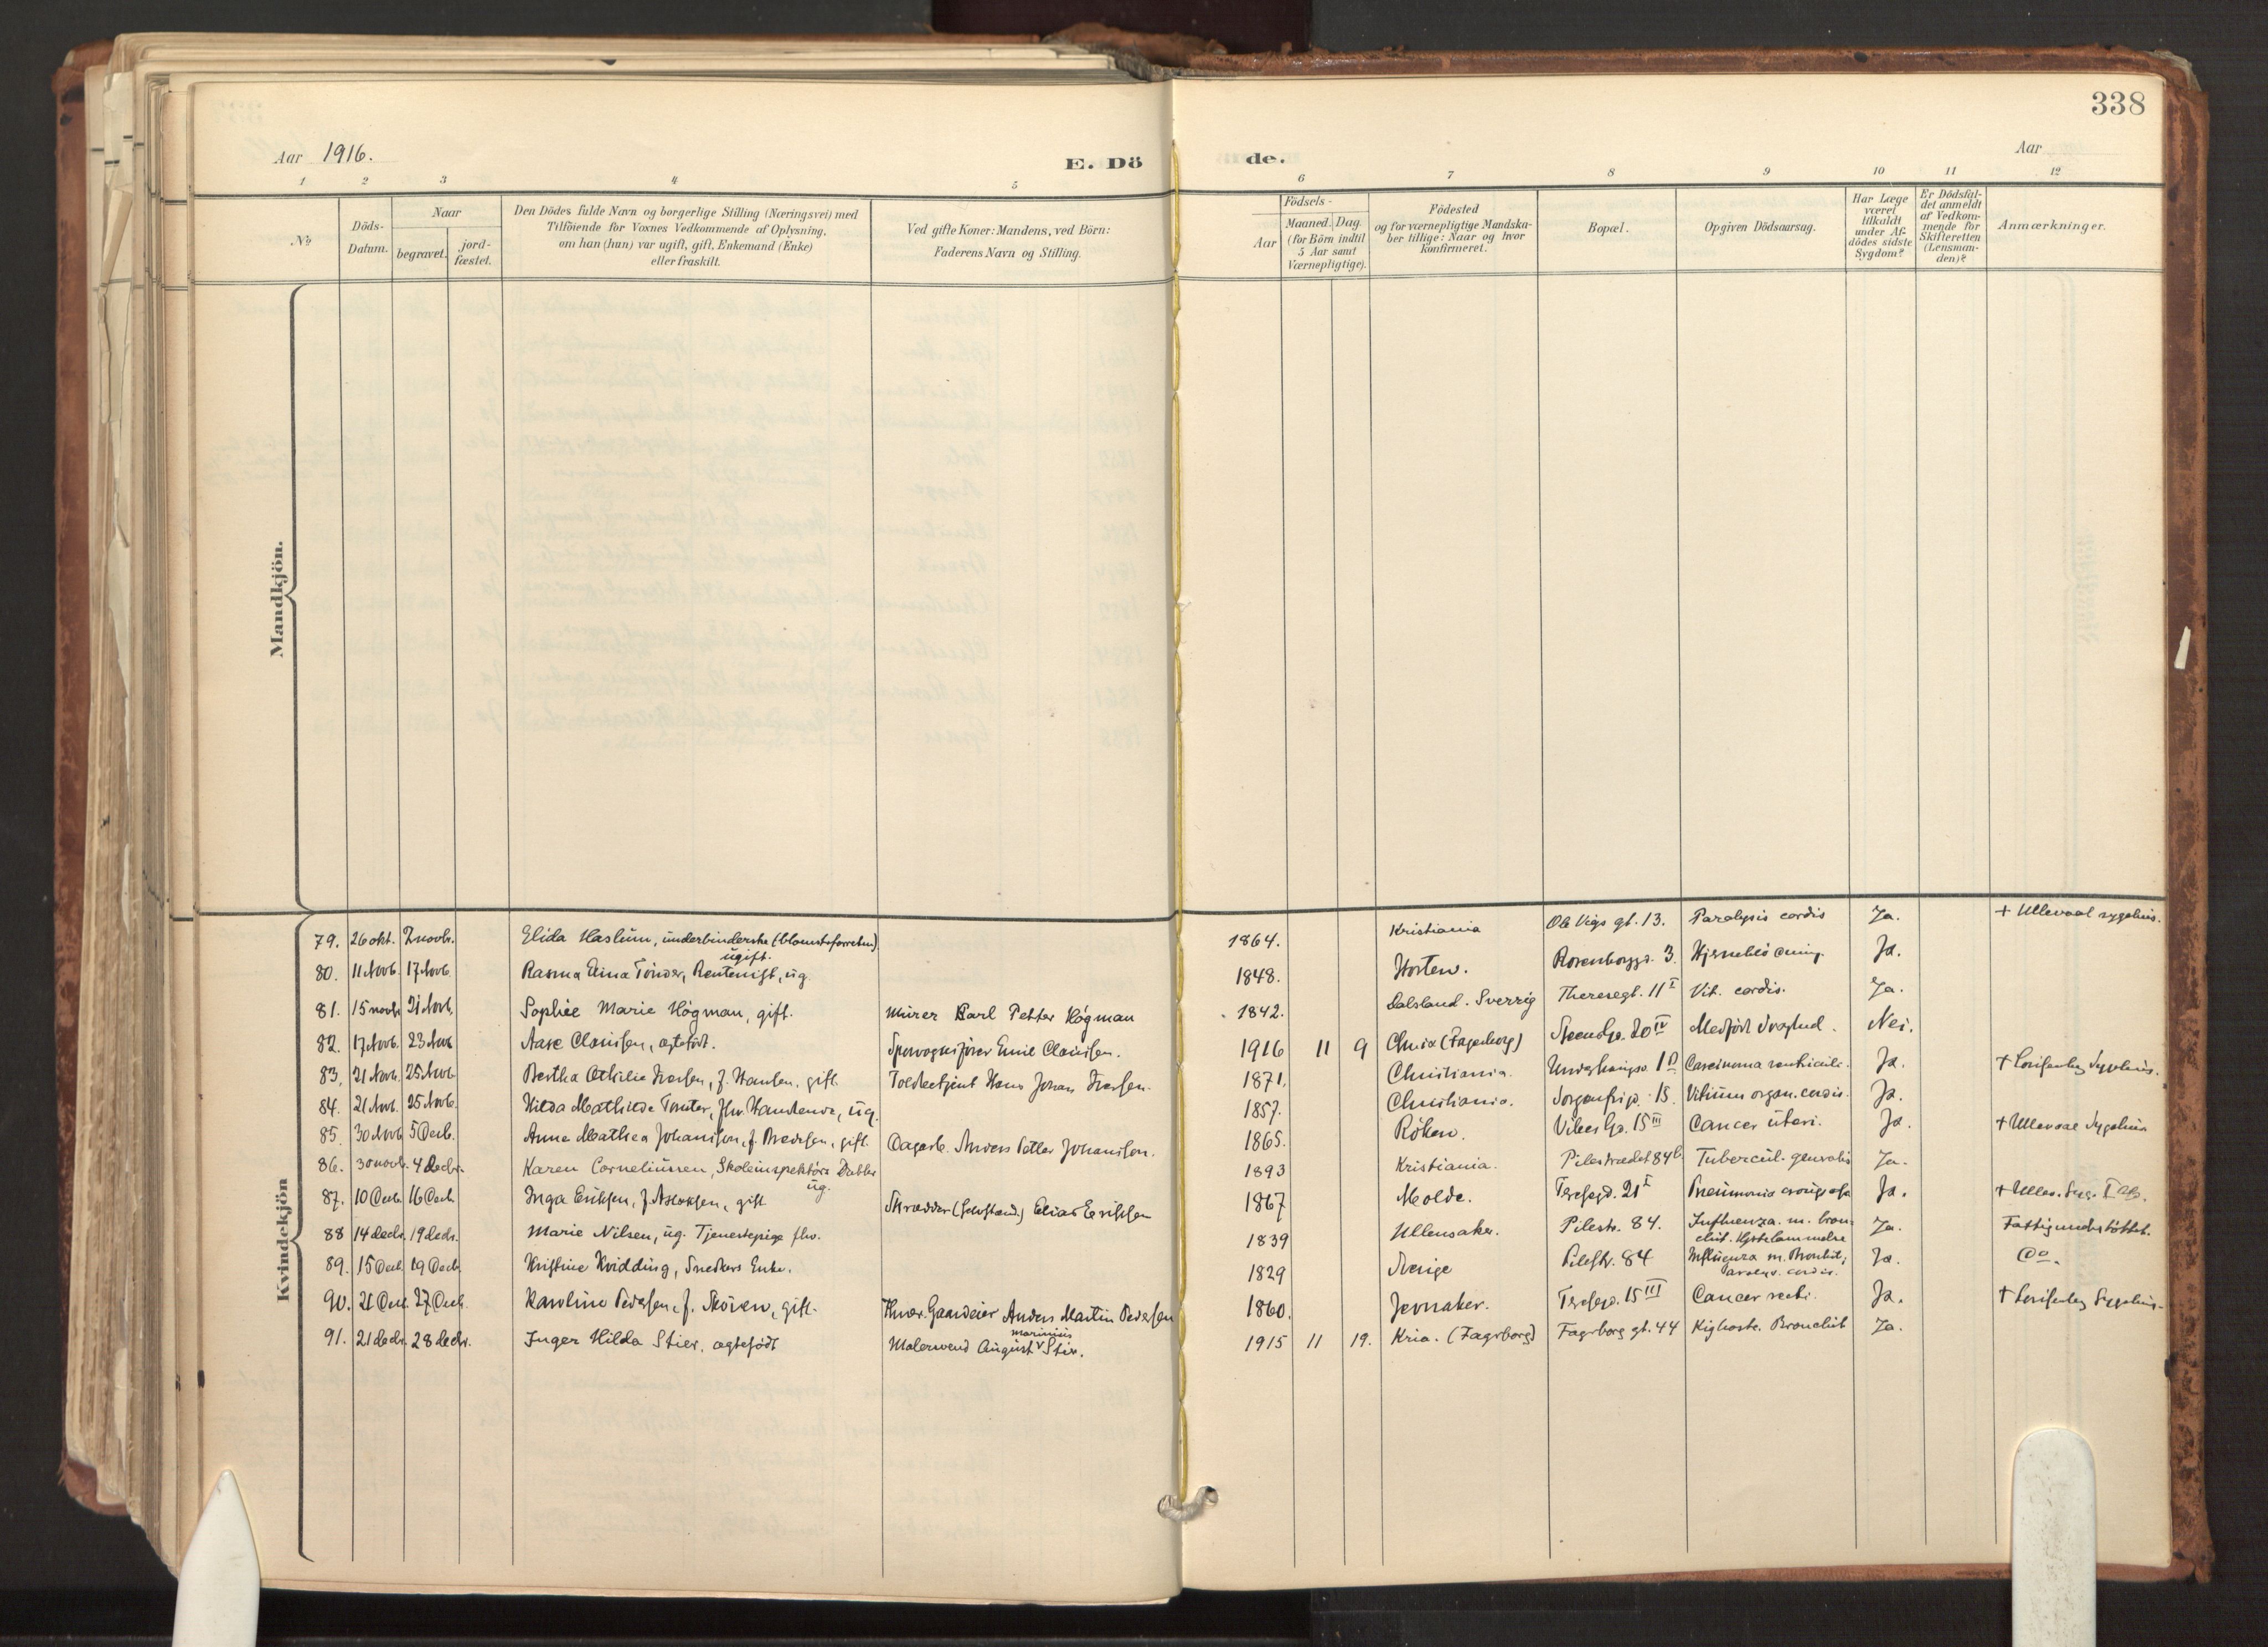 338
Aar 1916.
E. Dö
de.
Aar
1 2 3 4 5 6 7 8 9 10 11 12
№
Döds-Datum.
Naar
begravet.
jord-fæstet.
Den Dödes fulde Navn og borgerlige Stilling (Næringsvei) med
Tilföiende for Voxnes Vedkommende af Oplysning,
om han (hun) var ugift, gift, Enkemand (Enke)
eller fraskilt.
Ved gifte Koner: Mandens, ved Börn:
Faderens Navn og Stilling.
Födsels-
Aar
Maaned. Dag.
(for Börn indtil
5 Aar samt
Værnepligtige).
Födested
og for værnepligtige Mandska-
ber tillige: Naar og hvor
konfirmeret.
Bopæl.
Opgiven Dödsaarsag.
Har Læge
været
tilkaldt
under Af-
dödes sidste
Sygdom?
Er Dödsfal-
det anmeldt
af Vedkom-
mende for
Skifteretten
(Lensman-
den)?
Anmærkninger.
Mandkjön.
Kvindekjön
79. 26 okt. 2 novbr. Elida Haslum, underbinderske (blomsterforretn.) ugift. 1864. Kristiania Ole Vigs gt. 13. Paralysis cordis Ja. + Ullevaal sygehus.
80. 11 Novb. 17 Novb. Rasma Elina Tönder, Rentenist, ug. 1848. Horten. Rosenborggd. 3. Hjerneblödning. Ja.
81. 15 novbr 21 Novb. Sophie Marie Högman, gift. Murer Carl Petter Högman 1842. Dalsland. Sverrig Theresegt. 11 I Vit. cordis. Ja.
82. 17 Novb. 23 Novb Aase Clausen, ægtefödt. Sporvognsförer Emil Clausen. 1916 11 9 Chria (Fagerborg) 20 IV Medfödt Svaghed. Nei.
83. 21 Novb. 25 Novb Bertha Othilie Iversen, f. Hansen, gift. Toldbetjent Hans Johan Iversen. 1871. Christiania. Carcinoma ventriculi. Ja. + Lovisenberg Sygehus.
84. 21 Novb. 25 Novb. Hilda Mathilde ug. 1857. Christiania. Sorgenfrigd. 15. Vitium organ. cordis. Ja.
85. 30 Novb 5 Decb. Anne Mathea Johansen, f. gift. Dagarb. Anders Petter Johansen. 1865. Röken. Vibes Gd. 15 III Cancer uteri. Ja. + Ullevaal Sygehus
86. 30 novb. 4 decbr. Karen Corneliussen, Skoleinspektörs Datter ug. 1893 Kristiania. Pilestrædet 84 b Tubercul. generalis Ja.
87. 10 Decb. 16 Decb. Inga Eriksen, f. gift Skrædder Elias Eriksen 1867 Molde. Teresegd. 21 I Pneumonia crouposa Ja.
88 14 decbr. 19 decbr. Marie Nilsen, ug. Tjenestepige fhv. 1839 Ullensaker. Pilestr. 84. Influenza m. bron-
chit. Hjertelammelse Ja. Fattigunderstöttet.
89. 15 Decb. 19 Decb. Kristine Kvidding, Snedkers Enke. 1829 Sverige Pilestr. 84 Influenza m. Bronkit,
Paralys. cordis. Ja. Do.
90. 21 Decb. 27 Decb. Karoline Pedersen, f. Sköien, gift. Anders Martin Pedersen 1860. Jevnaker. Teresegd. 15 III Cancer recti. Ja. + Lovisenberg Sygehus.
91. 21 decbr. 28 decbr. Inger Hilda Stier, ægtefödt Malersvend August marinius Stier. 1915 11 19. Kria. (Fagerborg) Fagerborg gt. 44 Kighoste. Bronchit Ja.